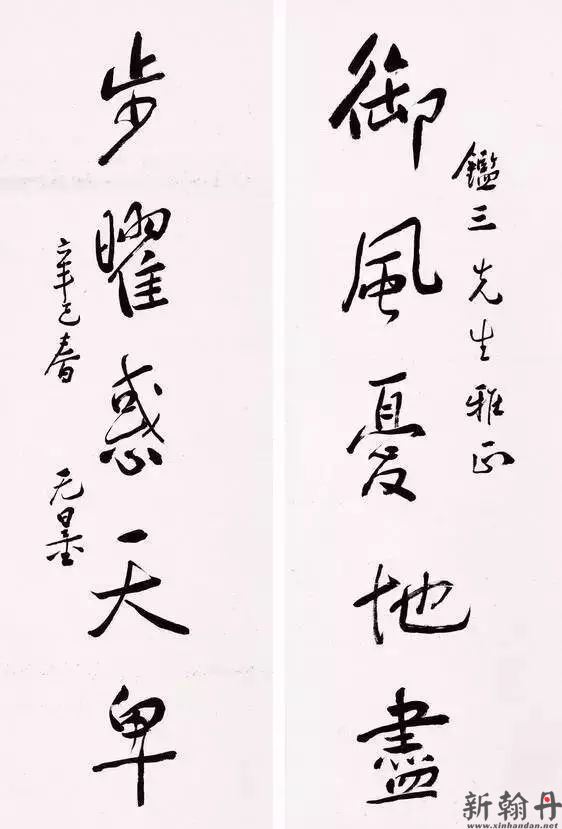 鑑三先生雅正
御風憂地盡
步曜惑天卑
辛巳春 无量
新翰丹
www.xinhandan.net